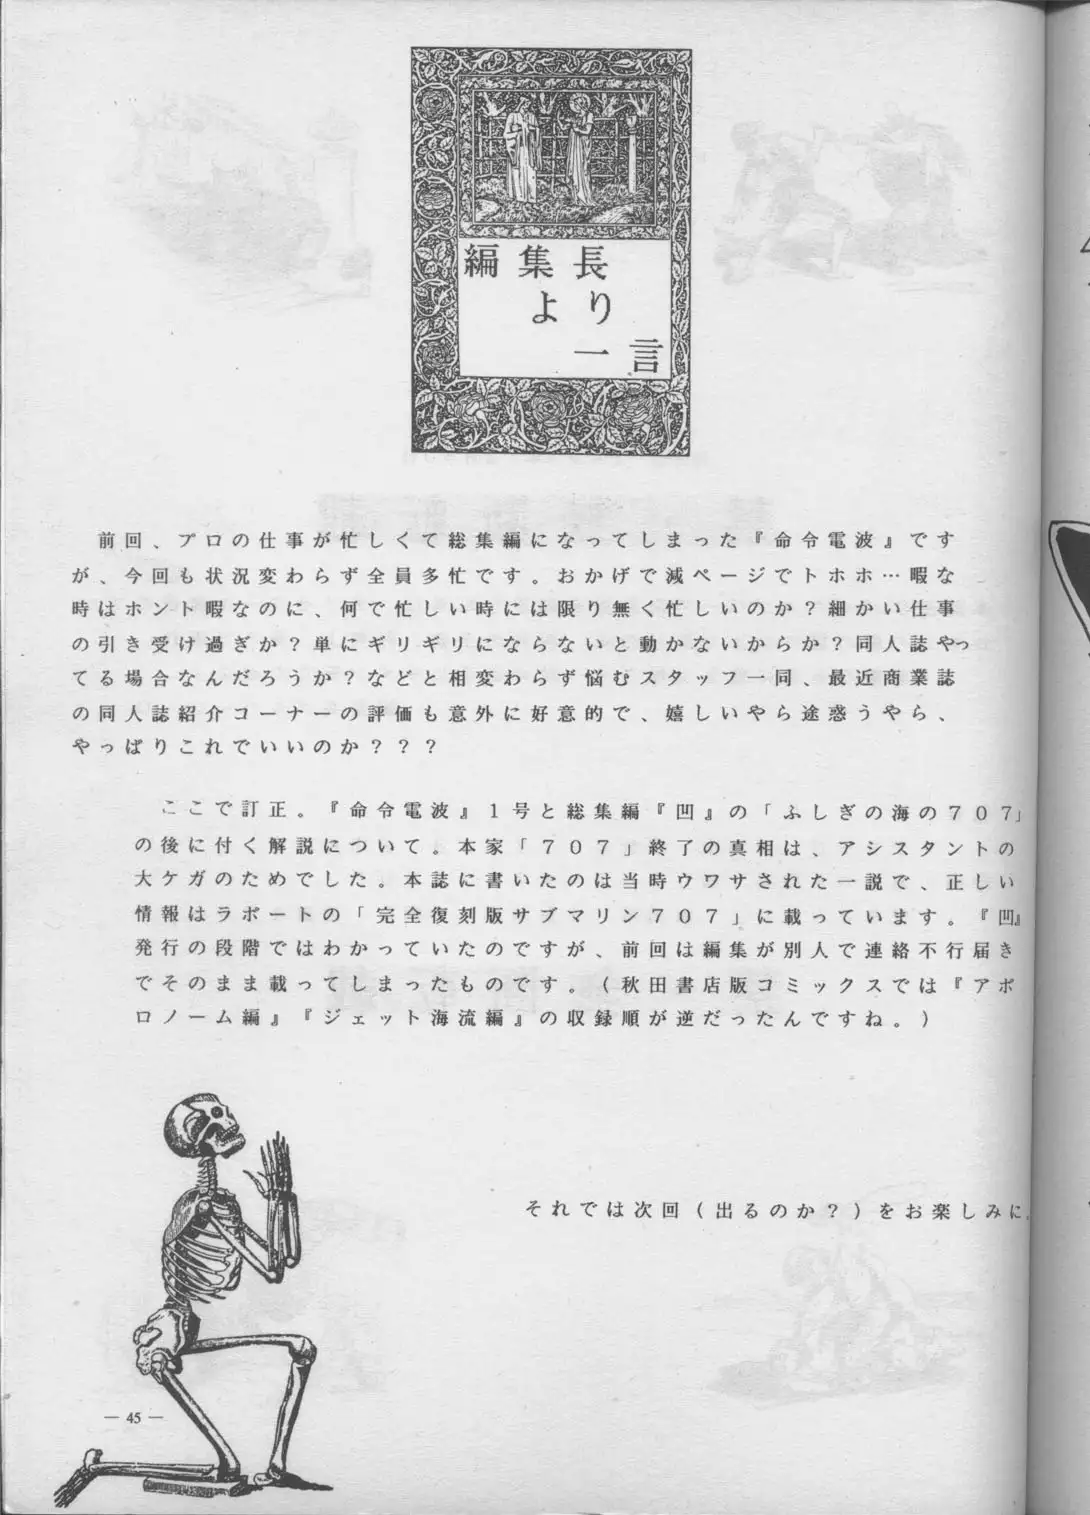 編集長
より
一言
前回、プロの仕事が忙しくて総集編になってしまった『命令電波』です
が、今回も状況変わらず全員多忙です。おかげで減ページでトホホ…暇な
時はホント暇なのに、何で忙しい時には限り無く忙しいのか？細かい仕事
の引き受け過ぎか？単にギリギリにならないと動かないからか？同人誌やっ
てる場合なんだろうか？などと相変わらず悩むスタッフ一同、最近商業誌
の同人誌紹介コーナーの評価も意外に好意的で、嬉しいやら途惑うやら、
やっぱりこれでいいのか？？？
ここで訂正。『命令電波』１号と総集編『凹』の「ふしぎの海の７０７」
の後に付く解説について。本家「７０７」終了の真相は、アシスタントの
大ケガのためでした。本誌に書いたのは当時ウワサされた一説で、正しい
情報はラポートの「完全復刻版サブマリン７０７」に載っています。『凹』
発行の段階ではわかっていたのですが、前回は編集が別人で連絡不行届き
でそのまま載ってしまったものです。（秋田書店版コミックスでは『アポ
ロノーム編』『ジェット海流編』の収録順が逆だったんですね。）
それでは次回（出るのか？）をお楽しみに。
— 45 —